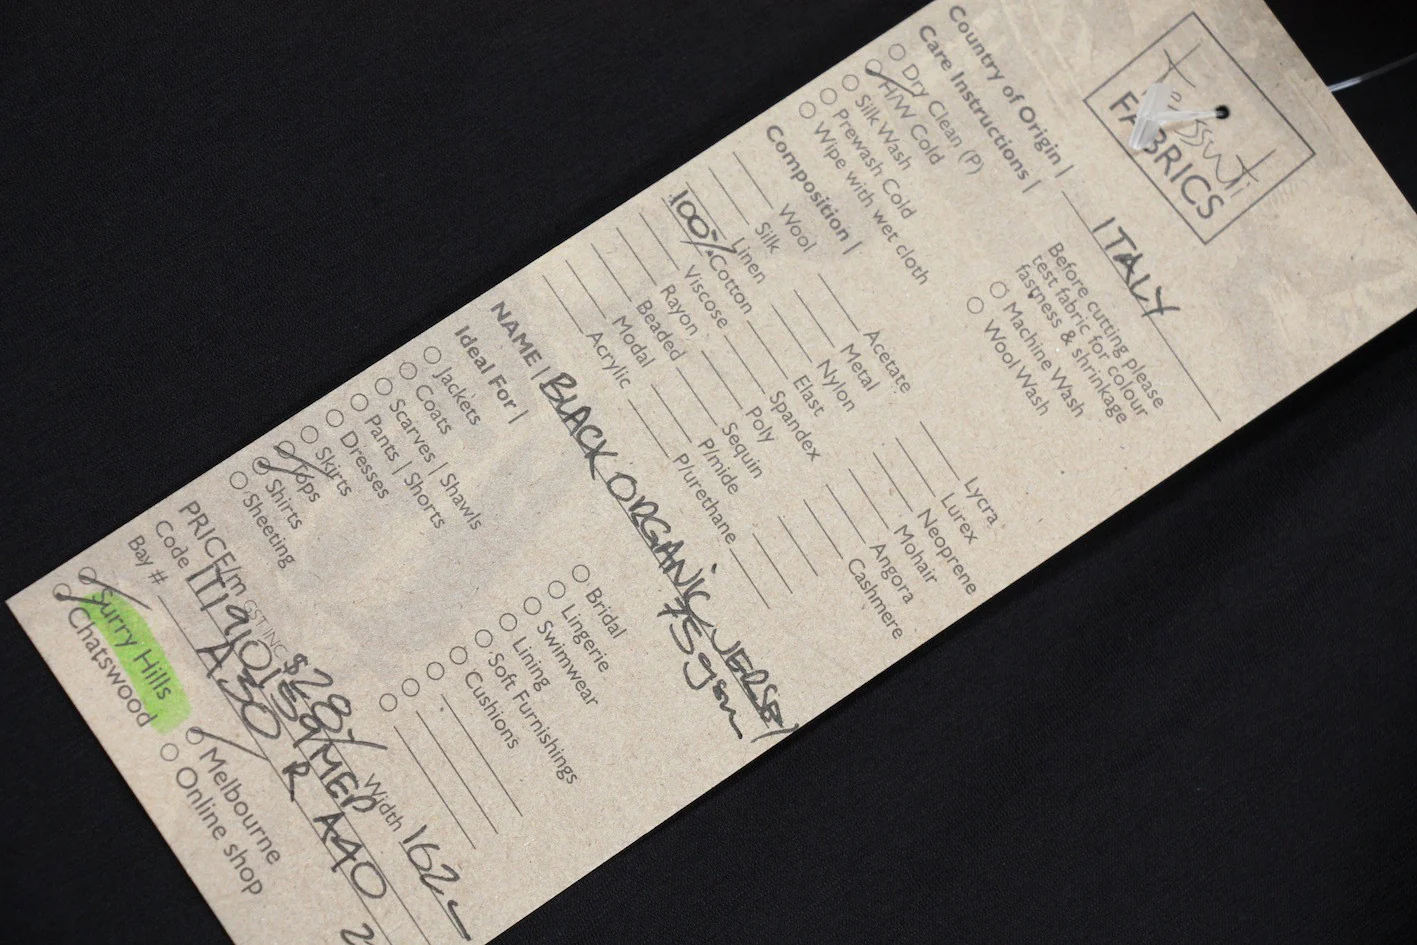 Tessuti
FABRICS
Country of Origin | ITALY
Care Instructions |
Dry Clean (P)
H/W Cold
Silk Wash
Prewash Cold
Wipe with wet cloth
Before cutting please
test fabric for colour
fastness & shrinkage
Machine Wash
Wool Wash
Composition |
Wool
Silk
Linen
100% Cotton
Viscose
Rayon
Beaded
Modal
Acrylic
Acetate
Metal
Nylon
Elast
Spandex
Poly
Sequin
P/mide
P/urethane
Lycra
Lurex
Neoprene
Mohair
Angora
Cashmere
NAME | BLACK ORGANIC JERSEY
75gsm
Ideal For |
Jackets
Coats
Scarves | Shawls
Pants | Shorts
Dresses
Skirts
Tops
Shirts
Sheeting
Bridal
Lingerie
Swimwear
Lining
Soft Furnishings
Cushions
PRICE/m GST INC $28/ Width 162
Code
Bay # A30 R A40
Surry Hills
Chatswood
Melbourne
Online shop